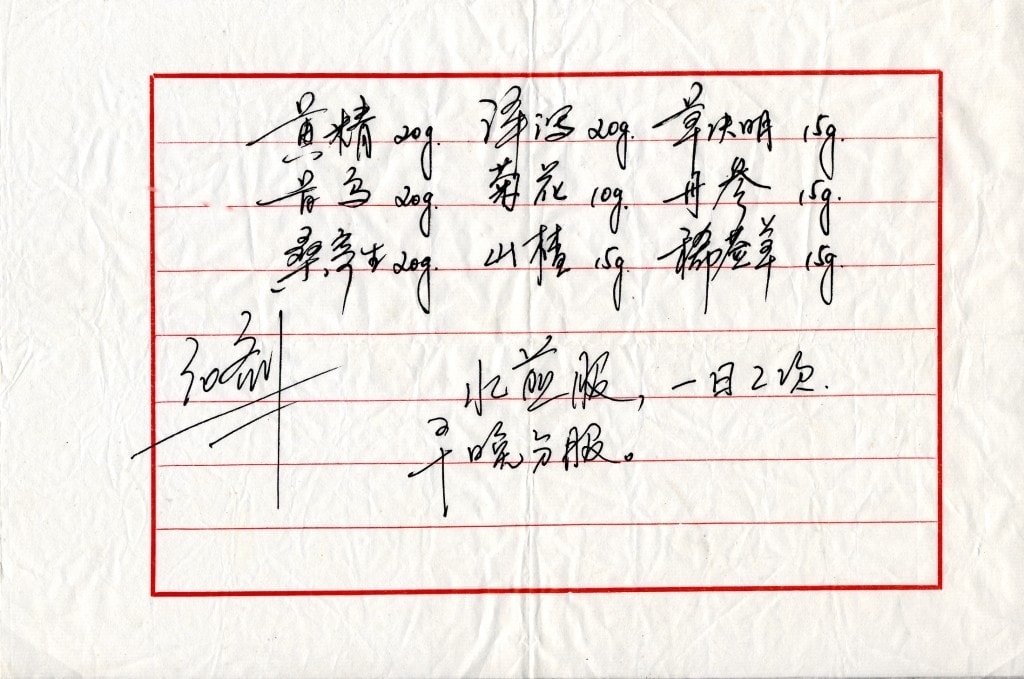 黄精 20g. 泽泻 20g. 草决明 15g.
首乌 20g. 菊花 10g. 丹参 15g.
桑寄生 20g. 山楂 15g. 豨莶草 15g.
水煎服,一日2次.
早晚分服。